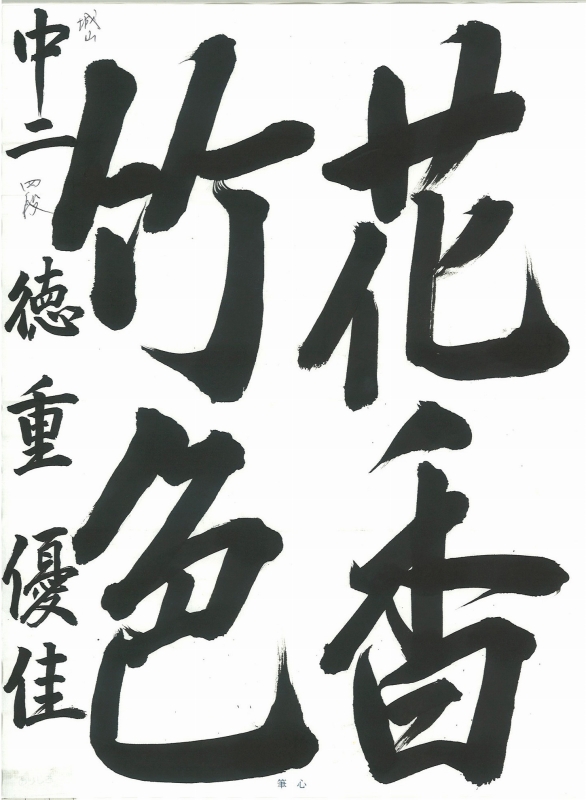 花香
竹色
城山
中二
四段
徳重優佳
心筆